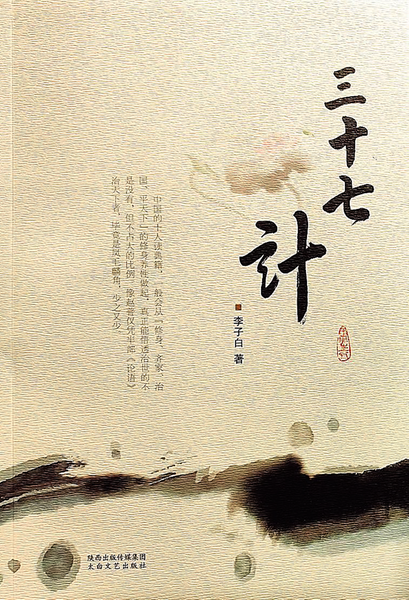 三十七
计
李子白 著
中国的士人读典籍，一般会从「修身、齐家、治
国、平天下」的修身养性做起，真正能悟透治世的不
是没有，但不占大的比例，像赵普仅凭半部《论语》
治天下者，毕竟是凤毛麟角，少之又少
陕西出版传媒集团
太白文艺出版社